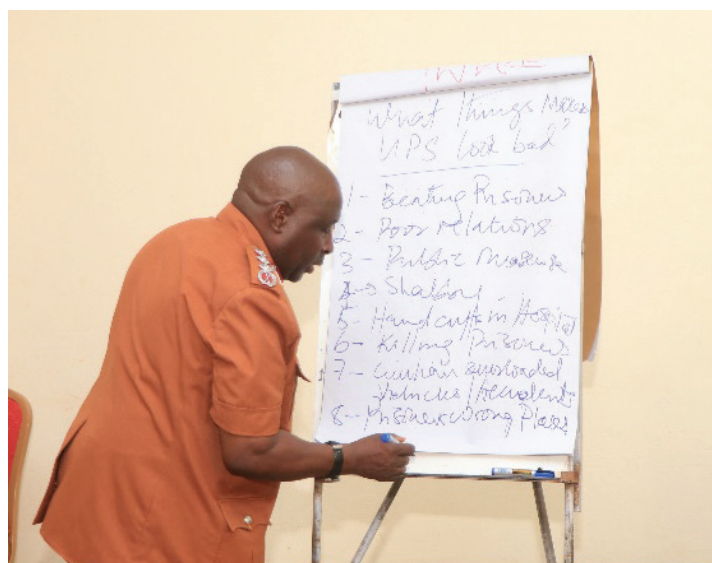 What Things Makes
UPS look bad"
1 - Beating Prisoners
2 - Poor relations
3 - Public
4 - Shabby
5 - Handcuffs in Hospital
6 - Killing Prisoners
7 - overloaded
Vehicles / Accidents
8 - Prisoners wrong Places